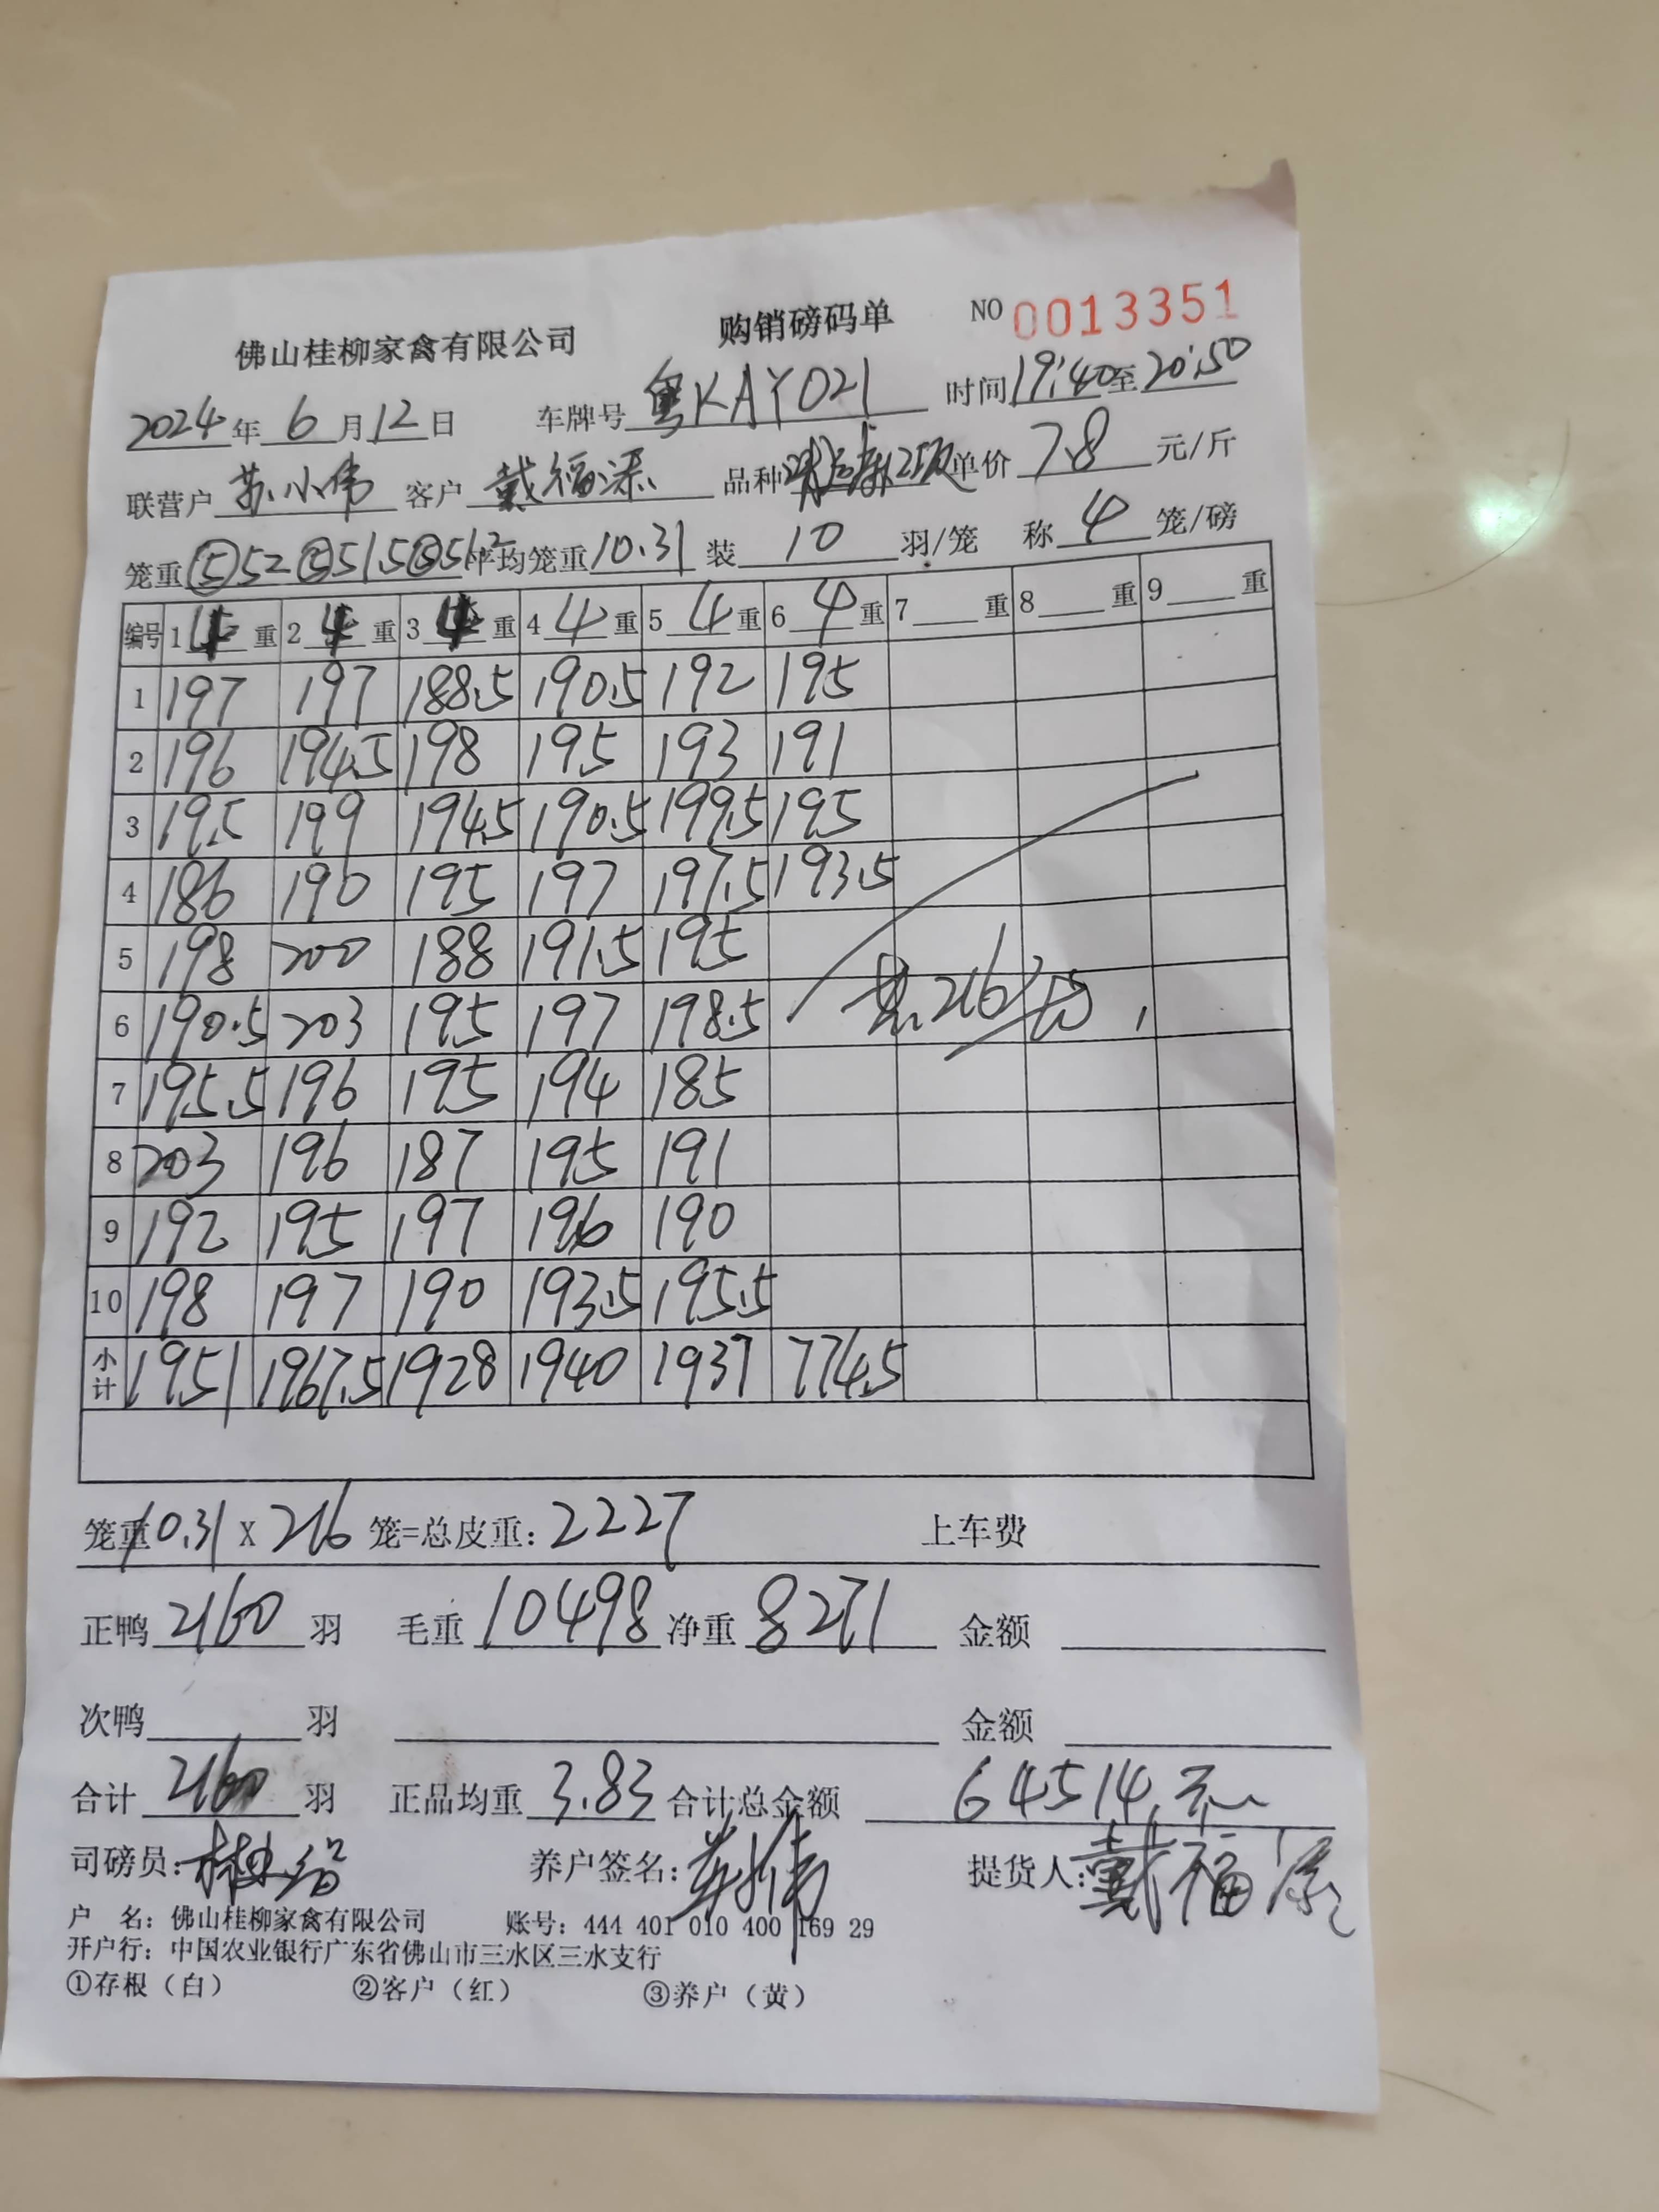 佛山桂柳家禽有限公司 购销磅码单 NO 0013351
2024年 6月12日 车牌号 粤KAY021 时间19:40至20:50
联营户 苏小伟 客户 戴福添 品种 单价 7.8 元/斤
笼重⑤52 ⑤51.5⑤51.2平均笼重10.31 装 10 羽/笼 称 4 笼/磅
编号 1 4 重 2 4 重 3 4 重 4 4 重 5 4 重 6 4 重 7 重 8 重 9 重
1 197 197 188.5 190.5 192 195
2 196 194.5 198 195 193 191
3 195 199 194.5 190.5 199.5 195
4 186 190 195 197 197.5 193.5
5 198 200 188 191.5 195
6 190.5 203 195 197 198.5 共216
7 195.5 196 195 194 185
8 203 196 187 195 191
9 192 195 197 196 190
10 198 197 190 193.5 195.5
小计 1951 1967.5 1928 1940 1937 774.5
笼重10.31 X 216 笼=总皮重:2227 上车费
正鸭 2160 羽 毛重 10498 净重 8271 金额
次鸭 羽 金额
合计 2160 羽 正品均重 3.83 合计总金额 64514元
司磅员: 养户签名:苏小伟 提货人:戴福添
户 名: 佛山桂柳家禽有限公司 账号: 444 401 010 400 169 29
开户行: 中国农业银行广东省佛山市三水区三水支行
①存根（白） ②客户（红） ③养户（黄）